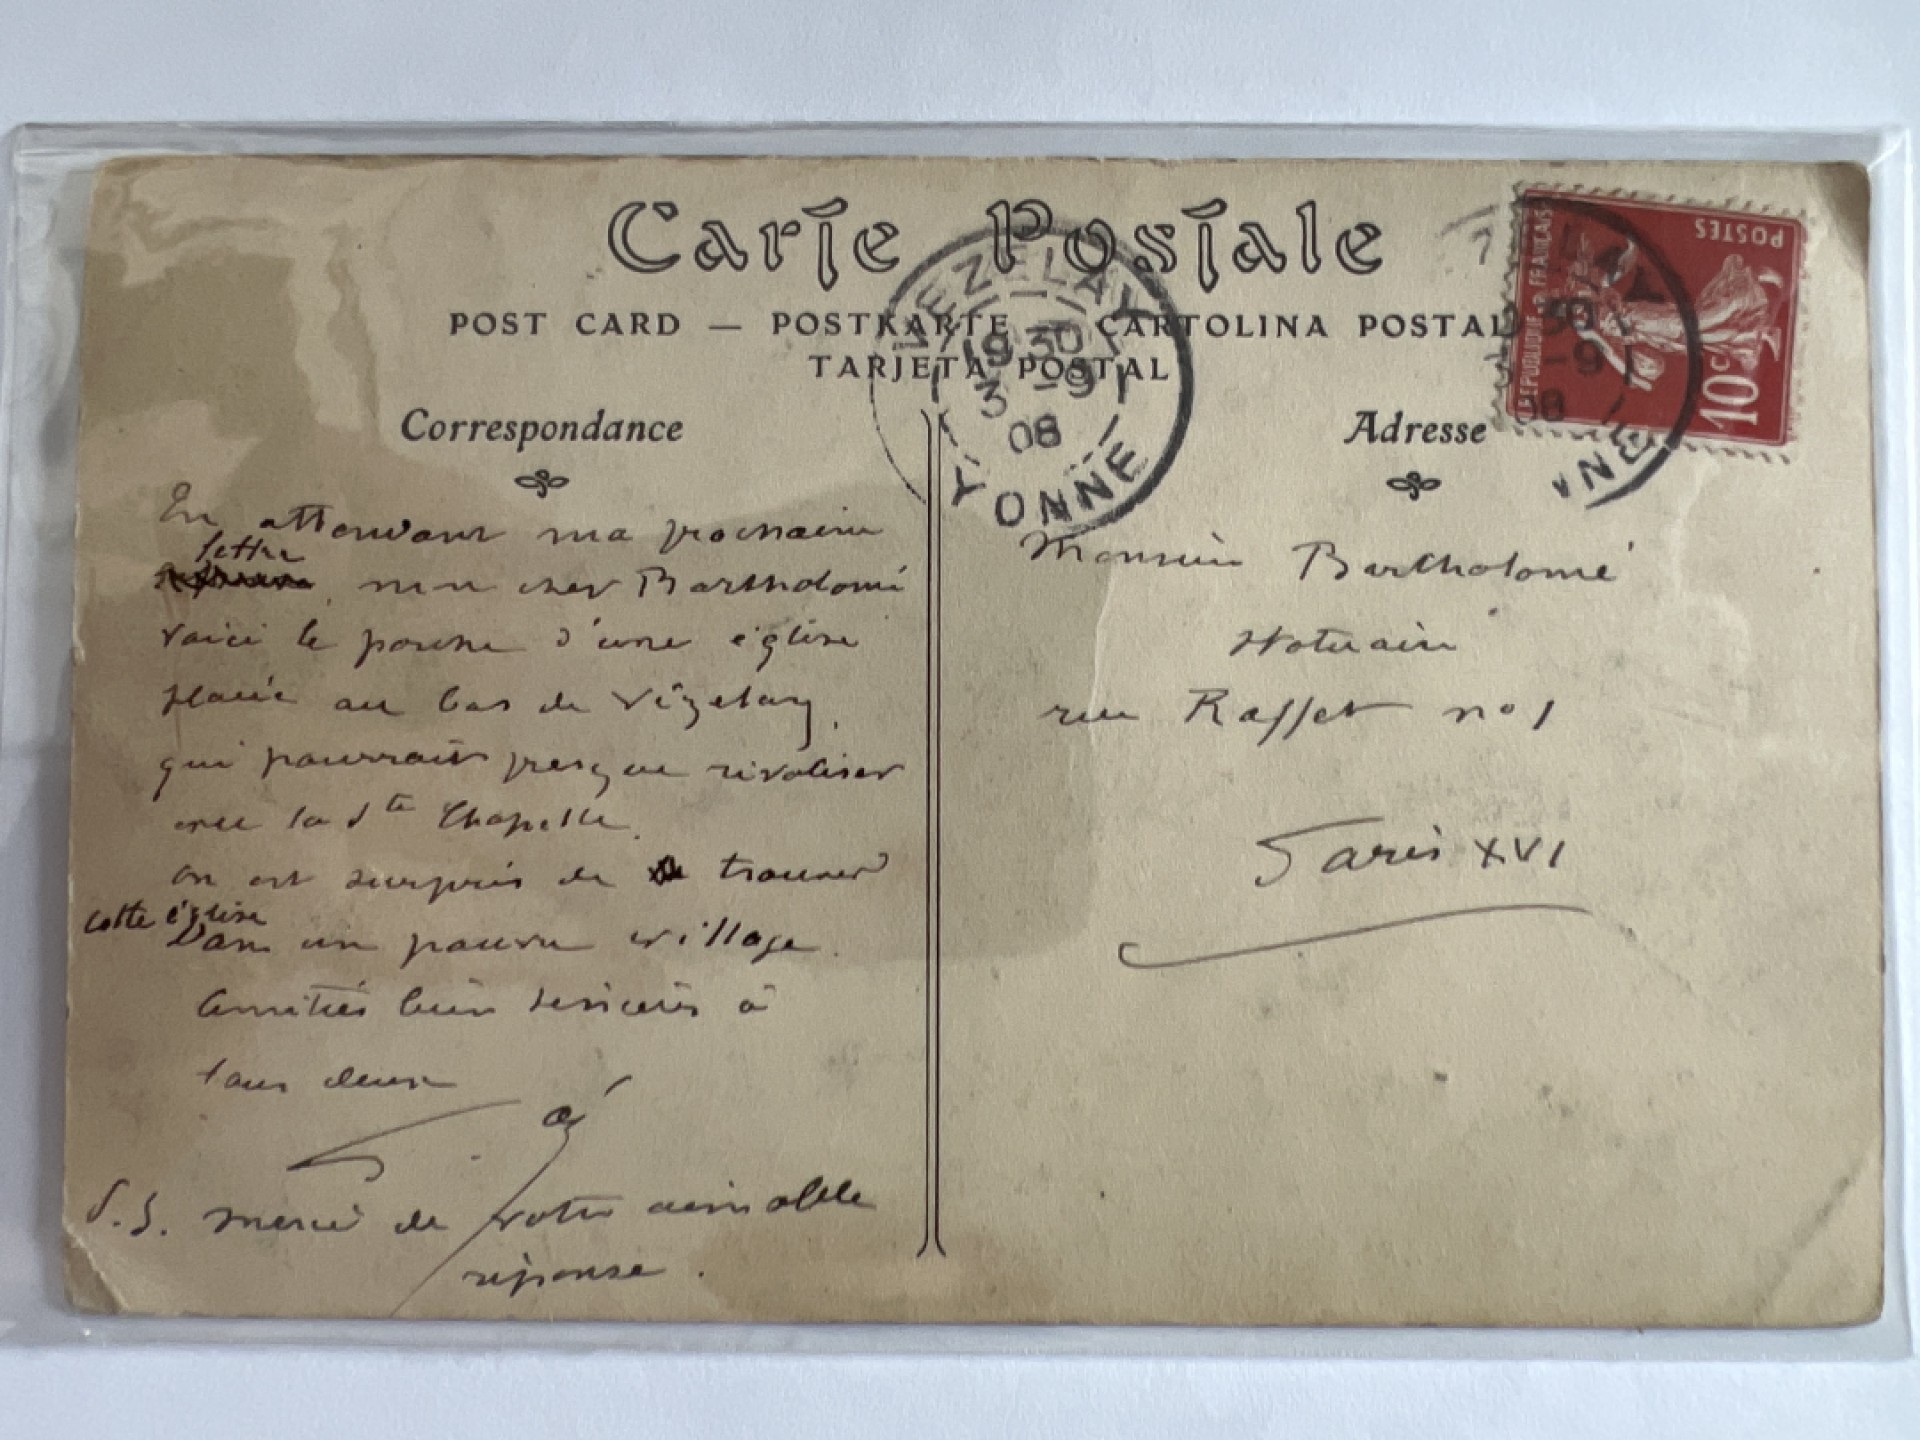 Carte Postale
POST CARD — POSTKARTE — CARTOLINA POSTAL
TARJETA POSTAL
VEZELAY
19 30
3 -9
08
YONNE
REPUBLIQUE FRANÇAISE
POSTES
10c
Correspondance
Adresse
En attendant ma prochaine
lettre
mon cher Bartholomé
voici le porche d'une église
placée au bas de Vézelay,
qui pourrait presque rivaliser
avec la Ste Chapelle.
on est surpris de trouver
cette église
Dans un pauvre village.
Amitiés bien sincères à
tous deux
P.S. merci de votre aimable
réponse.
Monsieur Bartholomé
rue Raffet no 1
Paris XVI